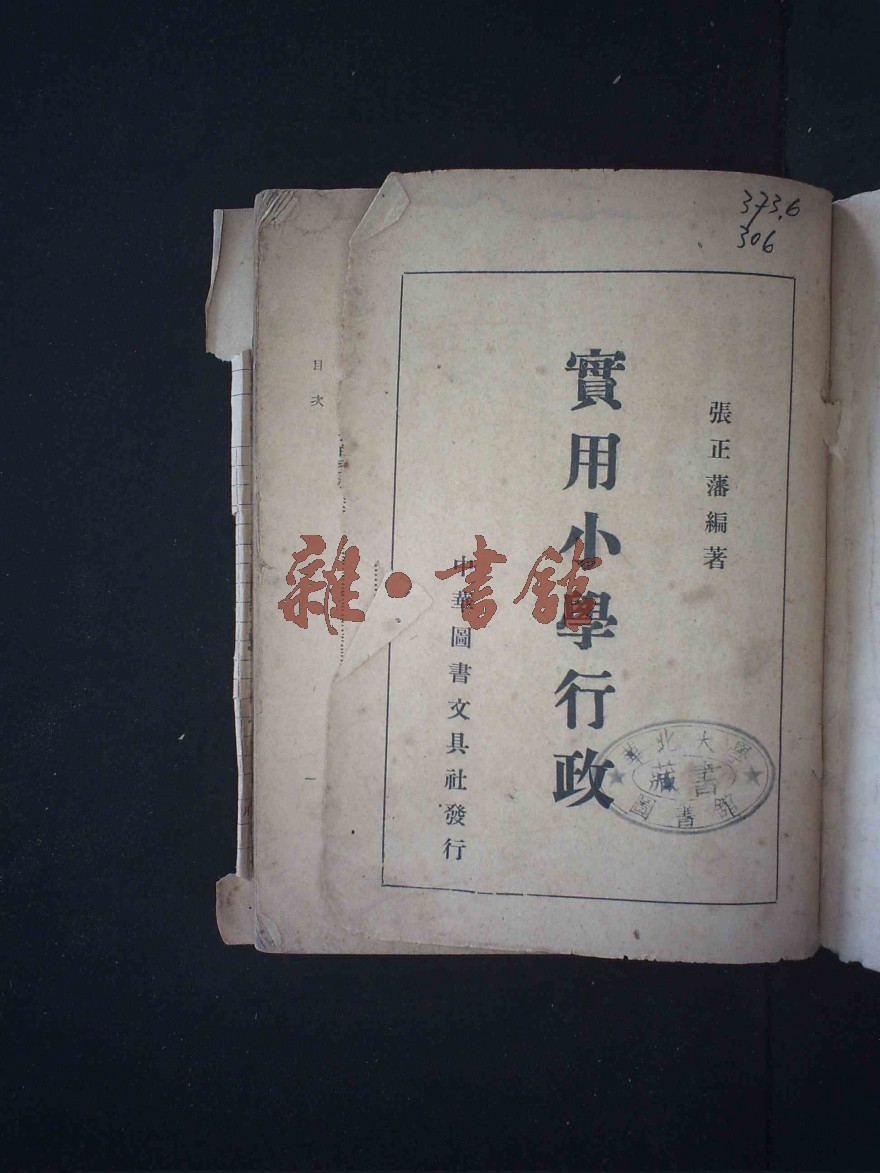 373.6
306
張正藩編著
實用小學行政
中華圖書文具社發行
華北大學
藏書
圖書館
目次
一
雜·書館